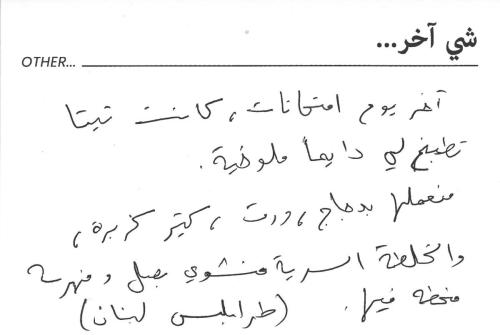 شي آخر...
OTHER...
آخر يوم امتحانات، كانت تيتا
تطبخ لي دايماً ملوخية.
منعملها بدجاج، ورق، كتير كزبرة،
والخلطة السرية منشوي بصل و
منحطه فيها. (طرابلس لبنان)